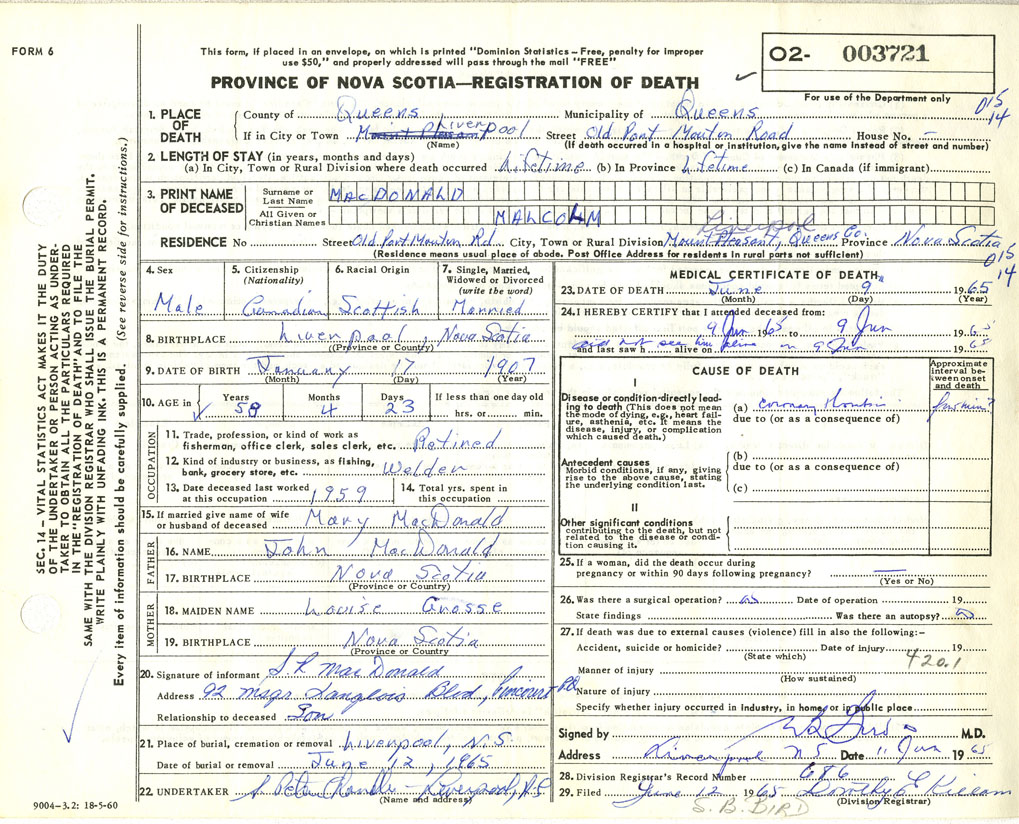 FORM 6
This form, if placed in an envelope, on which is printed "Dominion Statistics – Free, penalty for improper
use $50," and properly addressed will pass through the mail "FREE"
PROVINCE OF NOVA SCOTIA—REGISTRATION OF DEATH
O2- 003721
For use of the Department only
015
14
1. PLACE OF DEATH
County of Queens Municipality of Queens
If in City or Town Liverpool Street Old Port Mouton Road House No. –
(Name) (If death occurred in a hospital or institution, give the name instead of street and number)
2. LENGTH OF STAY (in years, months and days)
(a) In City, Town or Rural Division where death occurred Lifetime (b) In Province Lifetime (c) In Canada (if immigrant)
3. PRINT NAME OF DECEASED
Surname or Last Name MACDONALD
All Given or Christian Names MALCOLM
Liverpool
RESIDENCE No Street Old Port Mouton Rd City, Town or Rural Division Mount Pleasant, Queens Co. Province Nova Scotia
(Residence means usual place of abode. Post Office Address for residents in rural parts not sufficient)
015
14
4. Sex Male
5. Citizenship (Nationality) Canadian
6. Racial Origin Scottish
7. Single, Married, Widowed or Divorced (write the word) Married
8. BIRTHPLACE Liverpool, Nova Scotia
(Province or Country)
9. DATE OF BIRTH January 17 1907
(Month) (Day) (Year)
10. AGE in Years 58 Months 4 Days 23 If less than one day old hrs. or min.
OCCUPATION
11. Trade, profession, or kind of work as fisherman, office clerk, sales clerk, etc. Retired
12. Kind of industry or business, as fishing, bank, grocery store, etc. Welder
13. Date deceased last worked at this occupation 1959
14. Total yrs. spent in this occupation
15. If married give name of wife or husband of deceased Mary MacDonald
FATHER
16. NAME John MacDonald
17. BIRTHPLACE Nova Scotia
(Province or Country)
MOTHER
18. MAIDEN NAME Louise Crosse
19. BIRTHPLACE Nova Scotia
(Province or Country)
20. Signature of informant MacDonald
Address 92 Msgr Langlois Blvd, P.Q.
Relationship to deceased Son
21. Place of burial, cremation or removal Liverpool, N.S
Date of burial or removal June 12, 1965
22. UNDERTAKER Liverpool, N.S.
(Name and address)
MEDICAL CERTIFICATE OF DEATH
23. DATE OF DEATH June 9 1965
(Month) (Day) (Year)
24. I HEREBY CERTIFY that I attended deceased from:
9 Jun 1965 to 9 Jun 1965
did not see him alive on 9 Jun
and last saw h alive on 1965
CAUSE OF DEATH
Approximate interval between onset and death
I
Disease or condition directly leading to death (This does not mean the mode of dying, e.g., heart failure, asthenia, etc. It means the disease, injury, or complication which caused death.)
(a) coronary
due to (or as a consequence of)
Antecedent causes
Morbid conditions, if any, giving rise to the above cause, stating the underlying condition last.
(b)
due to (or as a consequence of)
(c)
II
Other significant conditions
contributing to the death, but not related to the disease or condition causing it.
25. If a woman, did the death occur during pregnancy or within 90 days following pregnancy? —
(Yes or No)
26. Was there a surgical operation? no Date of operation 19
State findings Was there an autopsy? no
27. If death was due to external causes (violence) fill in also the following:–
Accident, suicide or homicide? Date of injury 19
(State which)
420.1
Manner of injury
(How sustained)
Nature of injury
Specify whether injury occurred in industry, in home, or in public place
Signed by Bird M.D.
Address Liverpool N S Date 11 Jun 1965
28. Division Registrar's Record Number 686
29. Filed June 12 1965 Dorothy E Killam
(Division Registrar)
S. B. BIRD
9004–3.2: 18-5-60
SEC. 14 – VITAL STATISTICS ACT MAKES IT THE DUTY
OF THE UNDERTAKER OR PERSON ACTING AS UNDER-
TAKER TO OBTAIN ALL THE PARTICULARS REQUIRED
IN THE "REGISTRATION OF DEATH" AND TO FILE THE
SAME WITH THE DIVISION REGISTRAR WHO SHALL ISSUE THE BURIAL PERMIT.
WRITE PLAINLY WITH UNFADING INK. THIS IS A PERMANENT RECORD.
Every item of information should be carefully supplied. (See reverse side for instructions.)